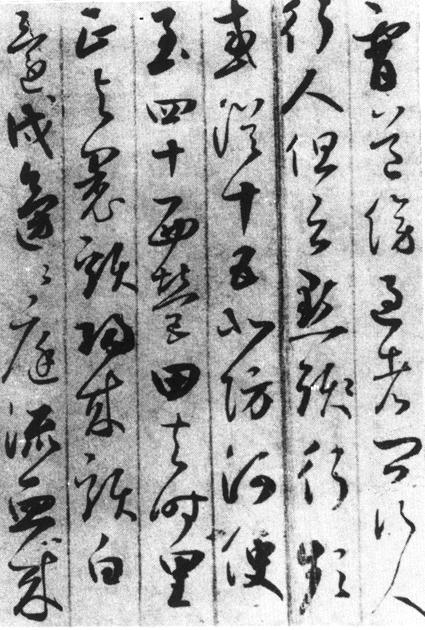 霄道傍過者問行人
行人但云點頻行頻
或從十五北防河便
至四十西營田去時里
正與裹頭歸來頭白
還戍邊〻庭流血成